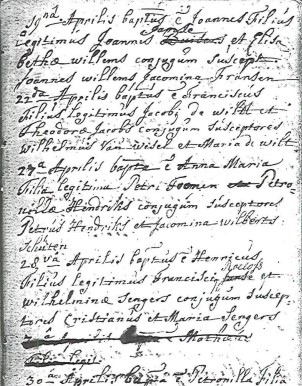 19na Aprilis baptus ē Joannes Filius
Legitimus Joannis Janse et Elisa
bethæ willems conjugum suscepit
Joannes willems Jacomina Fransen
22da Aprilis baptus ē Franciscus
Filius legitimus Jacobi de wildt et
Theodoræ Jacobs conjugum susceptores
wilhelmus Van wesel et Maria de wilt
27a Aprilis bapta ē Anna Maria
Filia legitima Petri Petro
nellæ Hendriks conjugum susceptores
Petrus Hendriks et Jacomina wilberts
Sluiten
28va Aprilis baptus ē Henricus
Filius legitimus Francisci Roelofs et
wilhelminæ Sengers conjugum suscep
tores Cristianus et Maria Sengers
Aprilis Mathæus
Filius
30a Aprilis bapta ē Petronella Filia